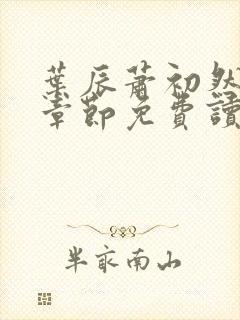 葉辰蕭初然
章節免費讀
半畝南山